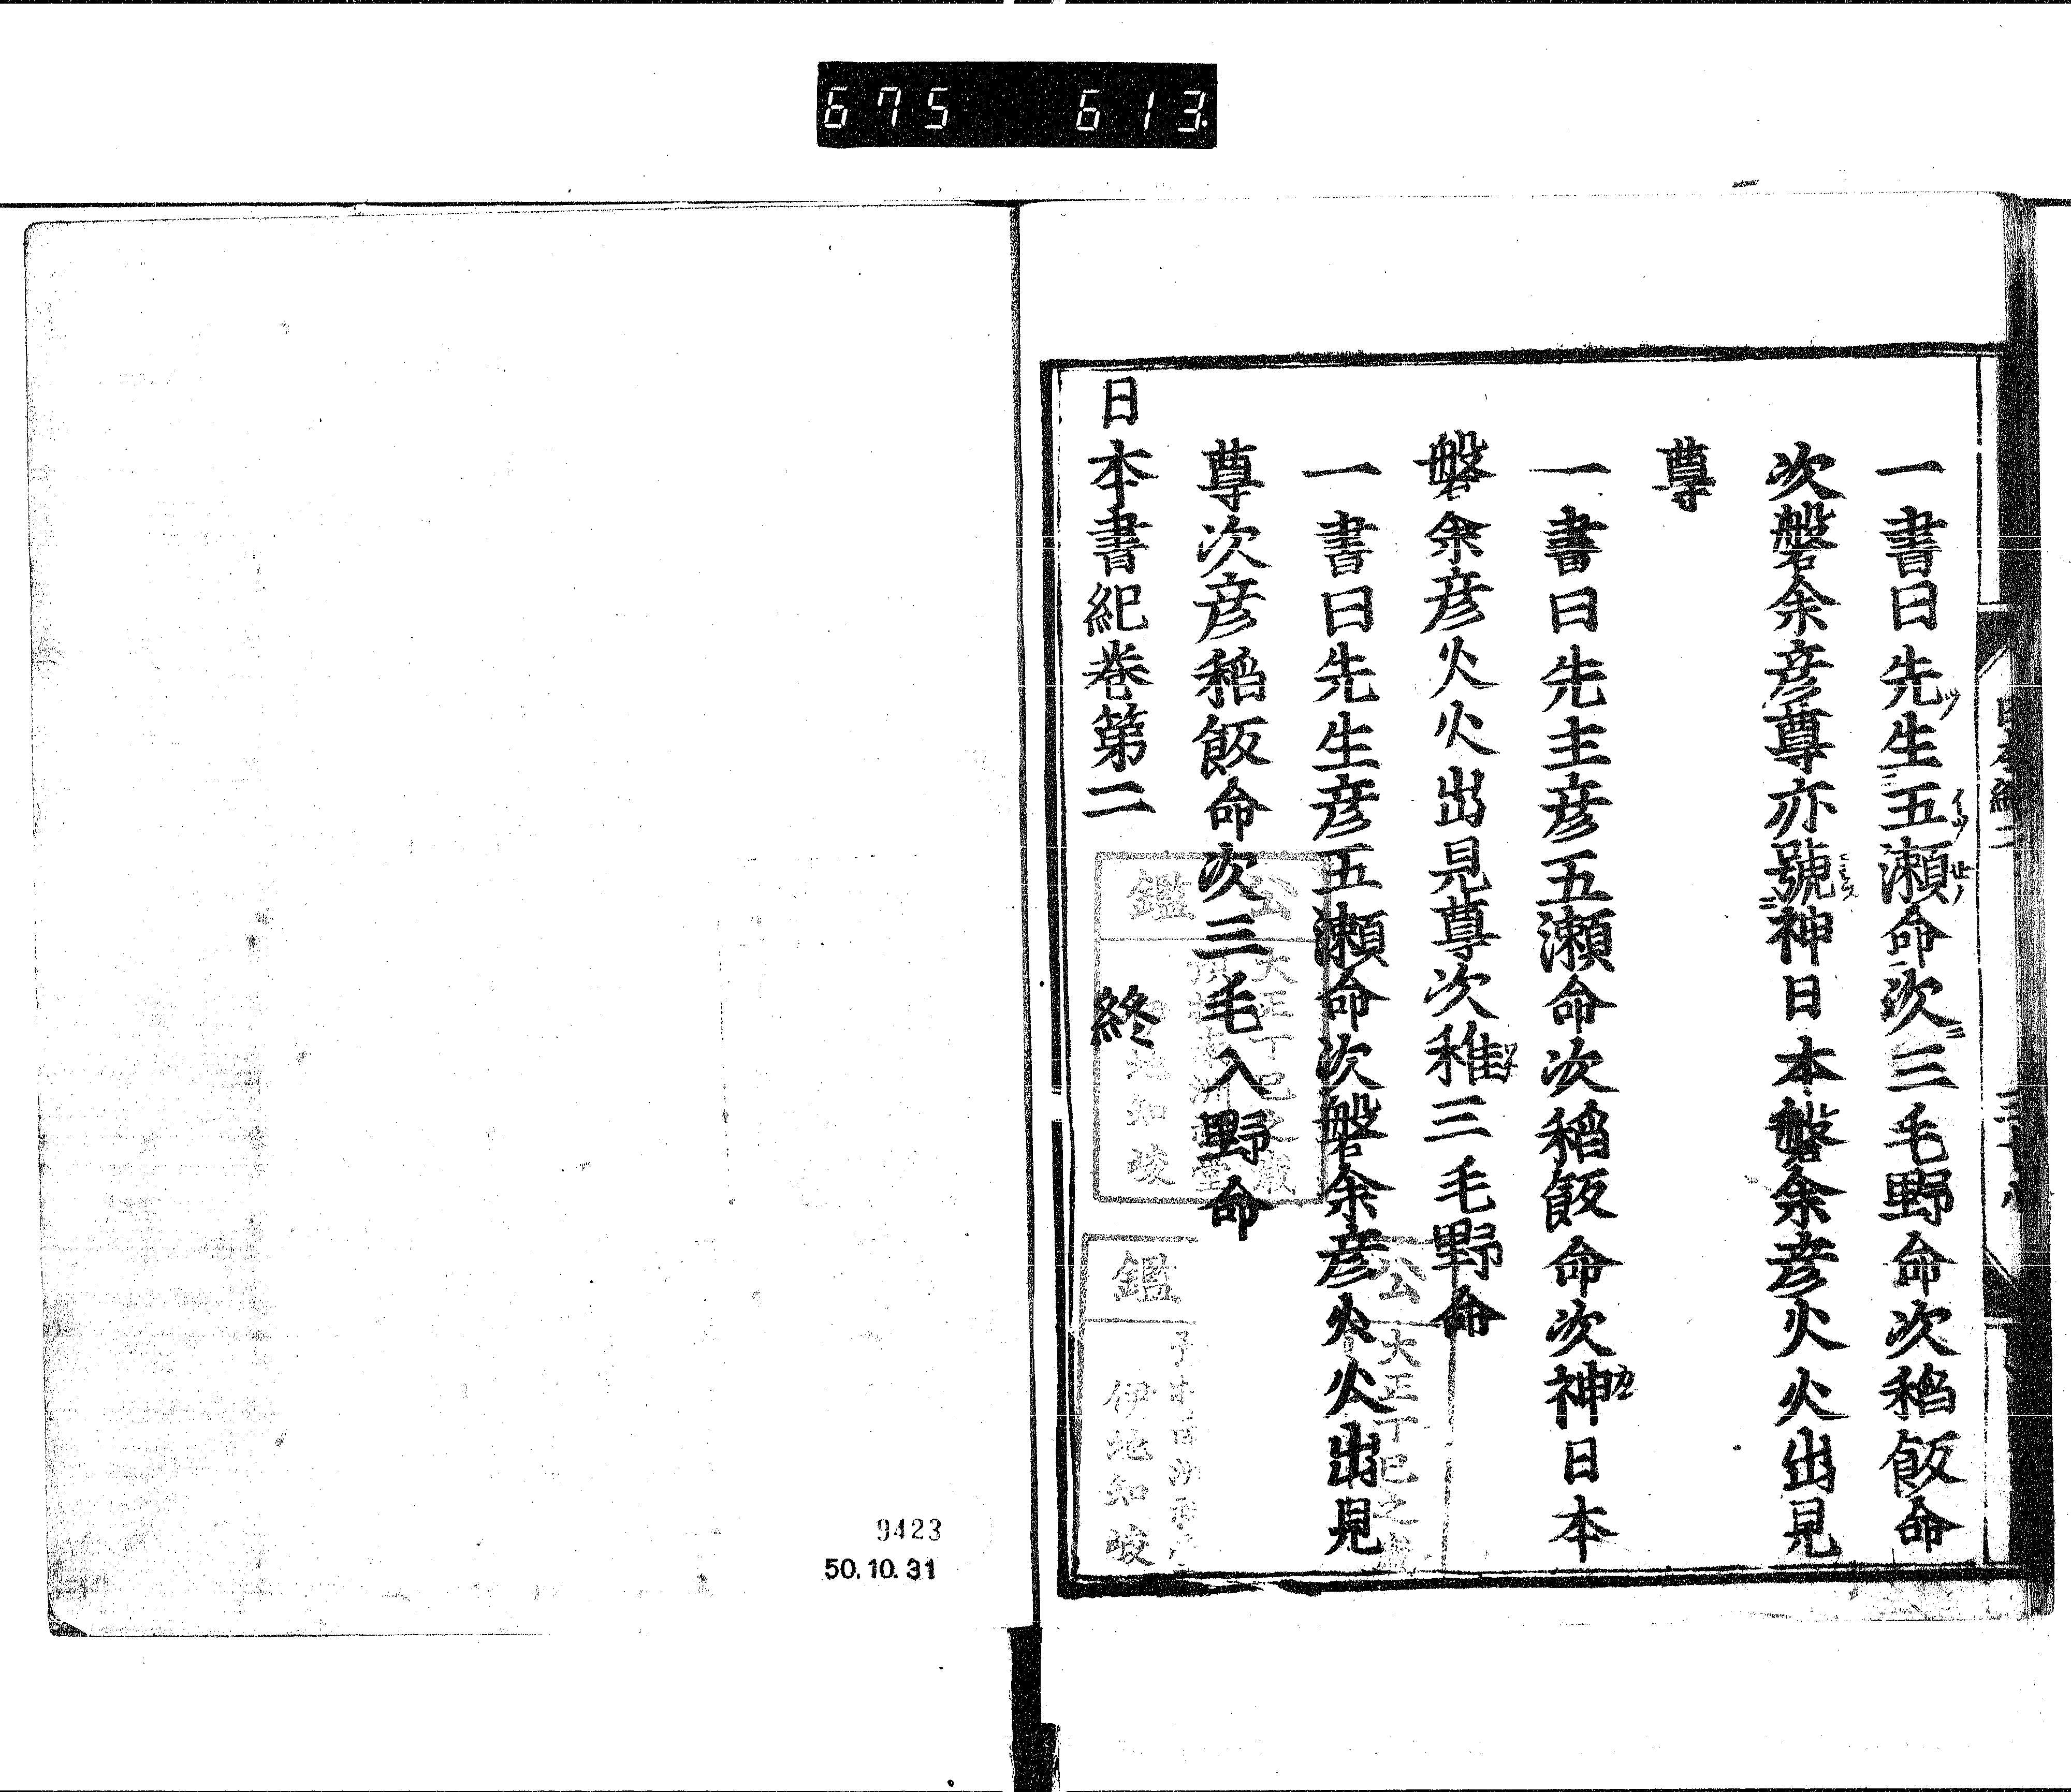 675 613.
一書曰先生五瀬命次三毛野命次稻飯命
次磐余彦尊亦號神日本磐余彦火火出見
尊
一書曰先主彦五瀬命次稻飯命次神日本
磐余彦火火出見尊次稚三毛野命
一書曰先生彦五瀬命次磐余彦火火出見
尊次彦稻飯命次三毛入野命
日本書紀巻第二 終
公鑑
大正丁巳之歳
地知峻
公鑑
大正丁巳之歳
伊地知峻
9423
50.10.31